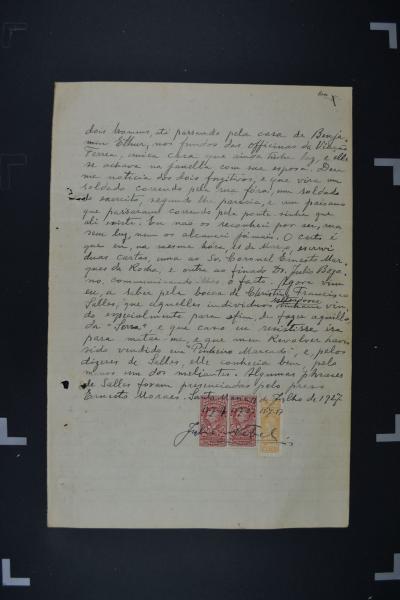 dois homens, ati passando pela casa de Benja
min Ethur, nos fundos das officinas da Viação
Ferrea, unica casa que ainda tinha luz, e elle
se achava na janella com sua esposa. Deu
me noticia dos dois fugitivos, e que vira um
soldado correndo pela rua fóra, um soldado
do exercito, segundo lhe parecia, e um paisano
que passaram correndo pela ponte
ali existe. Eu não os reconheci por ser, na
sem luz, nem os alcancei jámais. O certo é
que eu, na mesma hora, escrevi
duas cartas, uma ao Sr. Coronel Ernesto Mar
ques da Rocha, e outra ao finado Dr. Julio Bozo
no, communicando-lhes o facto. Agora vim
eu, a saber pela bocca de Christino Francisco
Salles, que aquelles individuos vin
do especialmente para afim, de fazer aquillo,
da "Serra", e que caso eu resistisse era
para matar-me, e que meu Revolver havia
sido vendido em "Pinheiro Marcado", e, pelos
dizeres de Salles, elle conhecia bem pelo
menos um dos meliantes. Algumas phrases
de Salles foram presenciadas pelo preso
Ernesto Moraes. Santa Maria, de Julho de 1927.